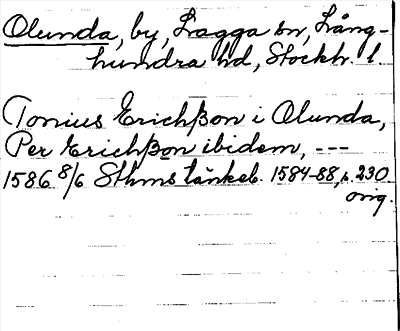 Olunda, by, Lagga sn, Lång-
hundra hd, Stockh. l.
Tonius Erichßon i Olunda,
Per Erichßon ibidem, ---
1586 8/6 Sthms tänkeb. 1584-88, s. 230
orig.